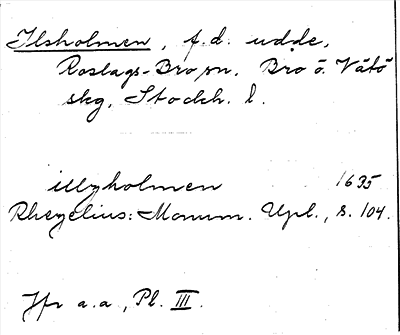 Ilsholmen, f.d. udde,
Roslags-Bro sn. Bro o. Vätö
skg, Stockh. l.
illyholmen 1635
Rhezelius: Monum. Upl., s. 104.
Jfr a.a., Pl. III.